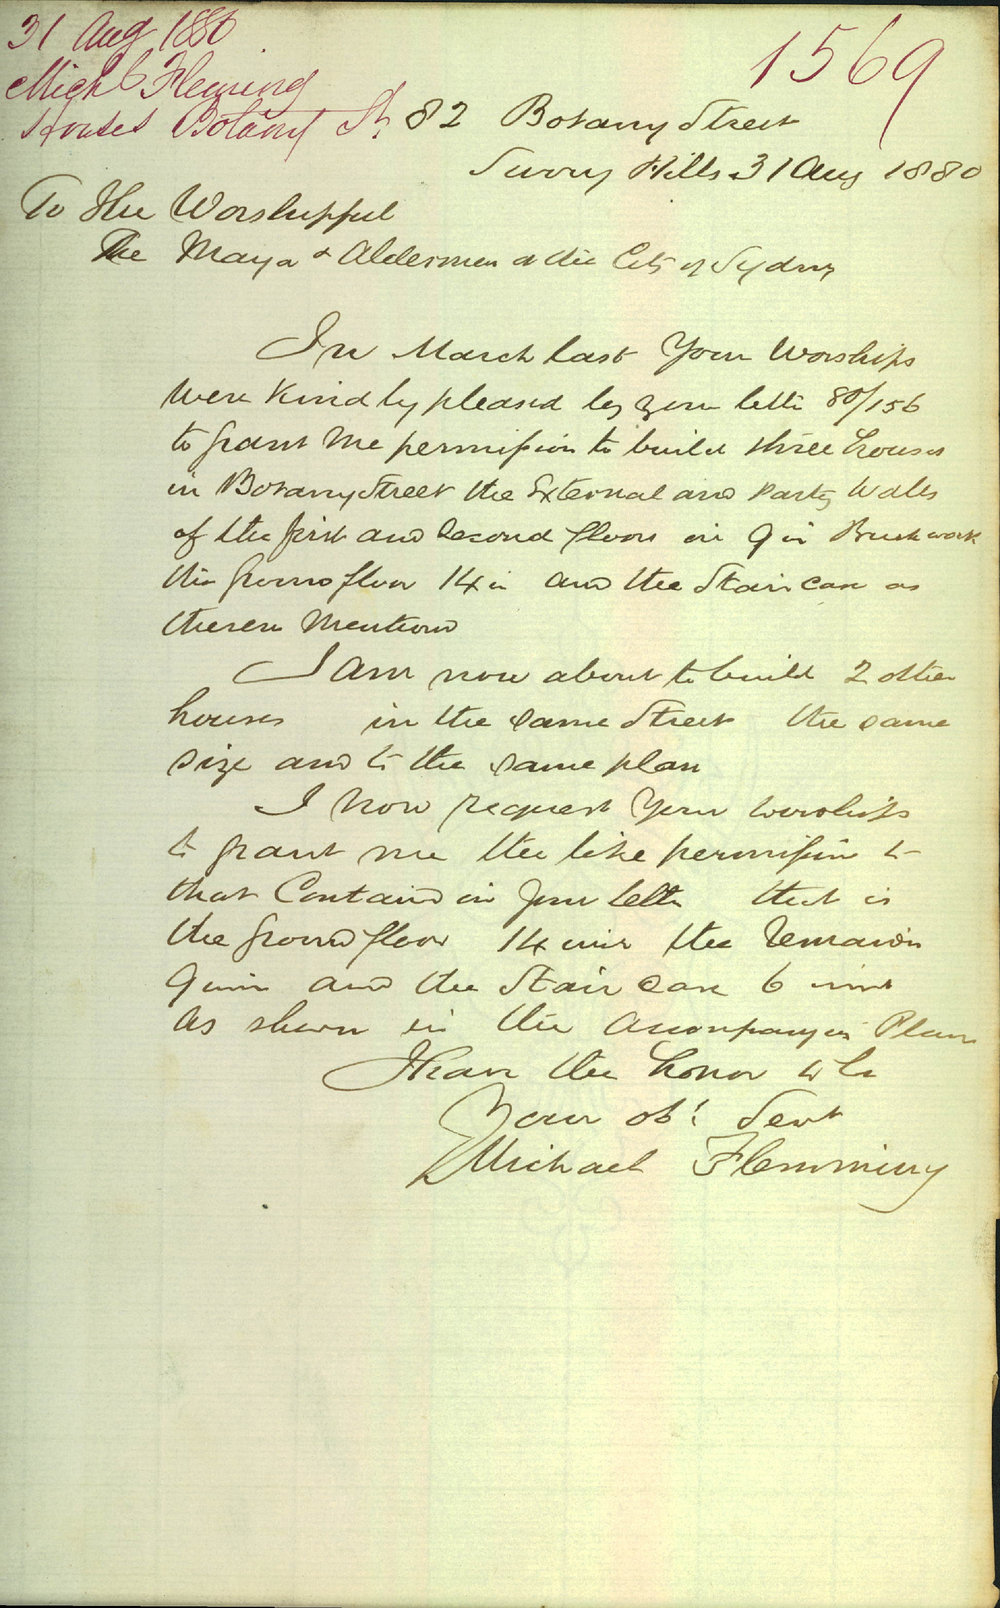 31 Aug 1880
Michl Fleming
Houses Botany St.
1569
82 Botany Street
Surry Hills 31 Aug 1880
To The Worshipful
The Mayor & Aldermen of the City of Sydney
In March last Your Worships
were Kindly pleased by your letter 80/156
to grant me permission to build three houses
in Botany Street the External and Party Walls
of the first and second floors in 9 in Brickwork
the ground floor 14 in and the Stair case as
therein Mentiond
I Am now about to build 2 other
houses in the same Street the same
size and to the same plan
I now request Your worships
to grant me the like permission to
that Containd in your letter that is
the ground floor 14 in the Remainin
9 in and the Stair case 6
As shewn in the Accompanyin Plan
I have the honor to be
Your obt Servt
Michael Flemming